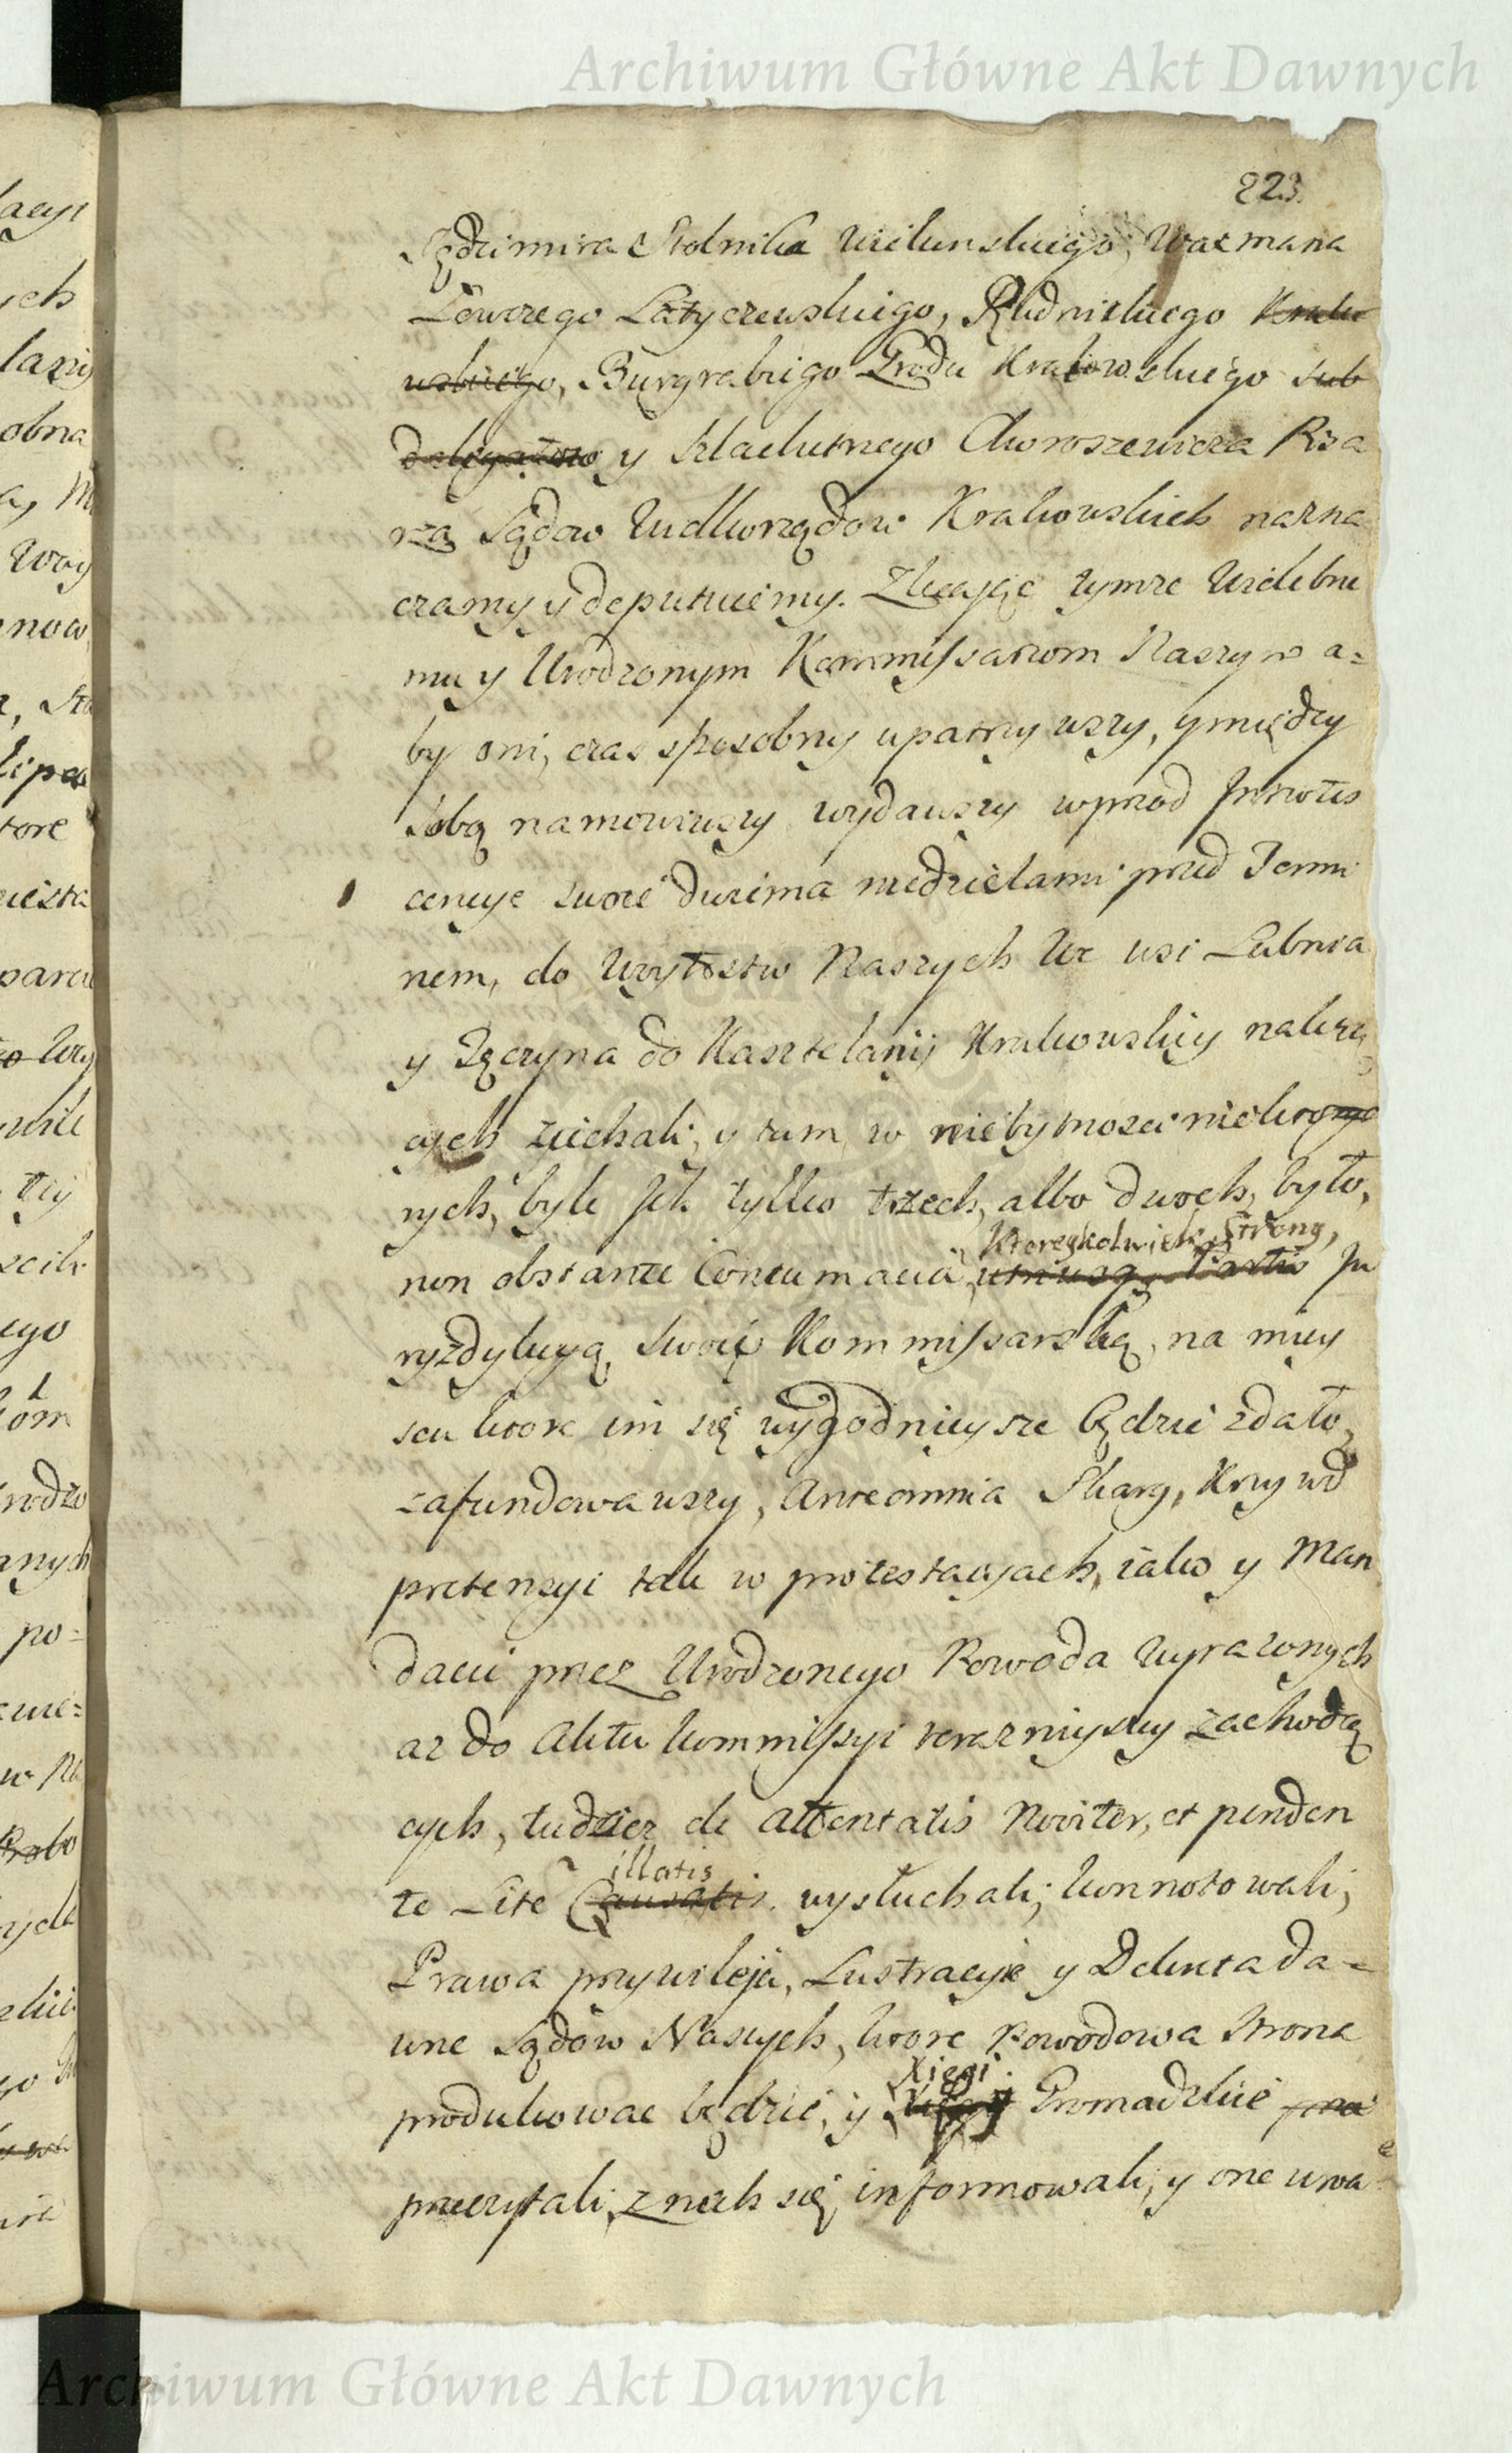 Archiwum Główne Akt Dawnych
223.
Sędzimira Stolnika Wielunskiego, Waxmana
Łowczego Latyczewskiego, Rudnickiego Krako
wskiego, Burgrabiego Grodu Krakowskiego sub
delegatow y Szlachetnego Choroszewicza Pisa
rza Sądow Wielkorządow Krakowskich nazna
czamy y deputuiemy. Zlecaiąc tymże Wielebne
mu y Urodzonym Kommissarzom Naszym a=
by oni, czas sposobny upatrzywszy, y między
sobą namowiwszy wydawszy wprzod Innotes
cencye swoie dwiema niedzielami przed Termi
nem, do Woytostw Naszych We wsi Lubnia
y Tęczyna do Kasztelanij Krakowskiey należą
cych ziechali, y tam w niebytnosci niekto
rych, byle Jch tylko trzech, albo dwoch, było,
Ktoreykolwiek Strony,
non obstante Contumacia utriusq Partis Ju
ryzdykcyą swoię Kommissarską, na miey
scu ktore im się wygodnieysze będzie zdało,
zafundowawszy, Anteomnia Skarg, Krzywd
pretensyi tak w protestacyach, iako y Man
dacie przez Urodzonego Powoda wyrazonych
az do Aktu kommissyi teraznieyszey zachodzą
cych, tudziez de attentatis Noviter, et penden
illatis
te Lite Causatis wysłuchali, konnotowali,
Prawa przywileja, Lustracyie y Dekreta da=
wne Sądow Naszych, ktore Powodowa Strona
Xięgi
produkowac będzie, y Xięgi Gromadzkie prze
przeczytali, z nich się informowali, y one uwa
Archiwum Główne Akt Dawnych